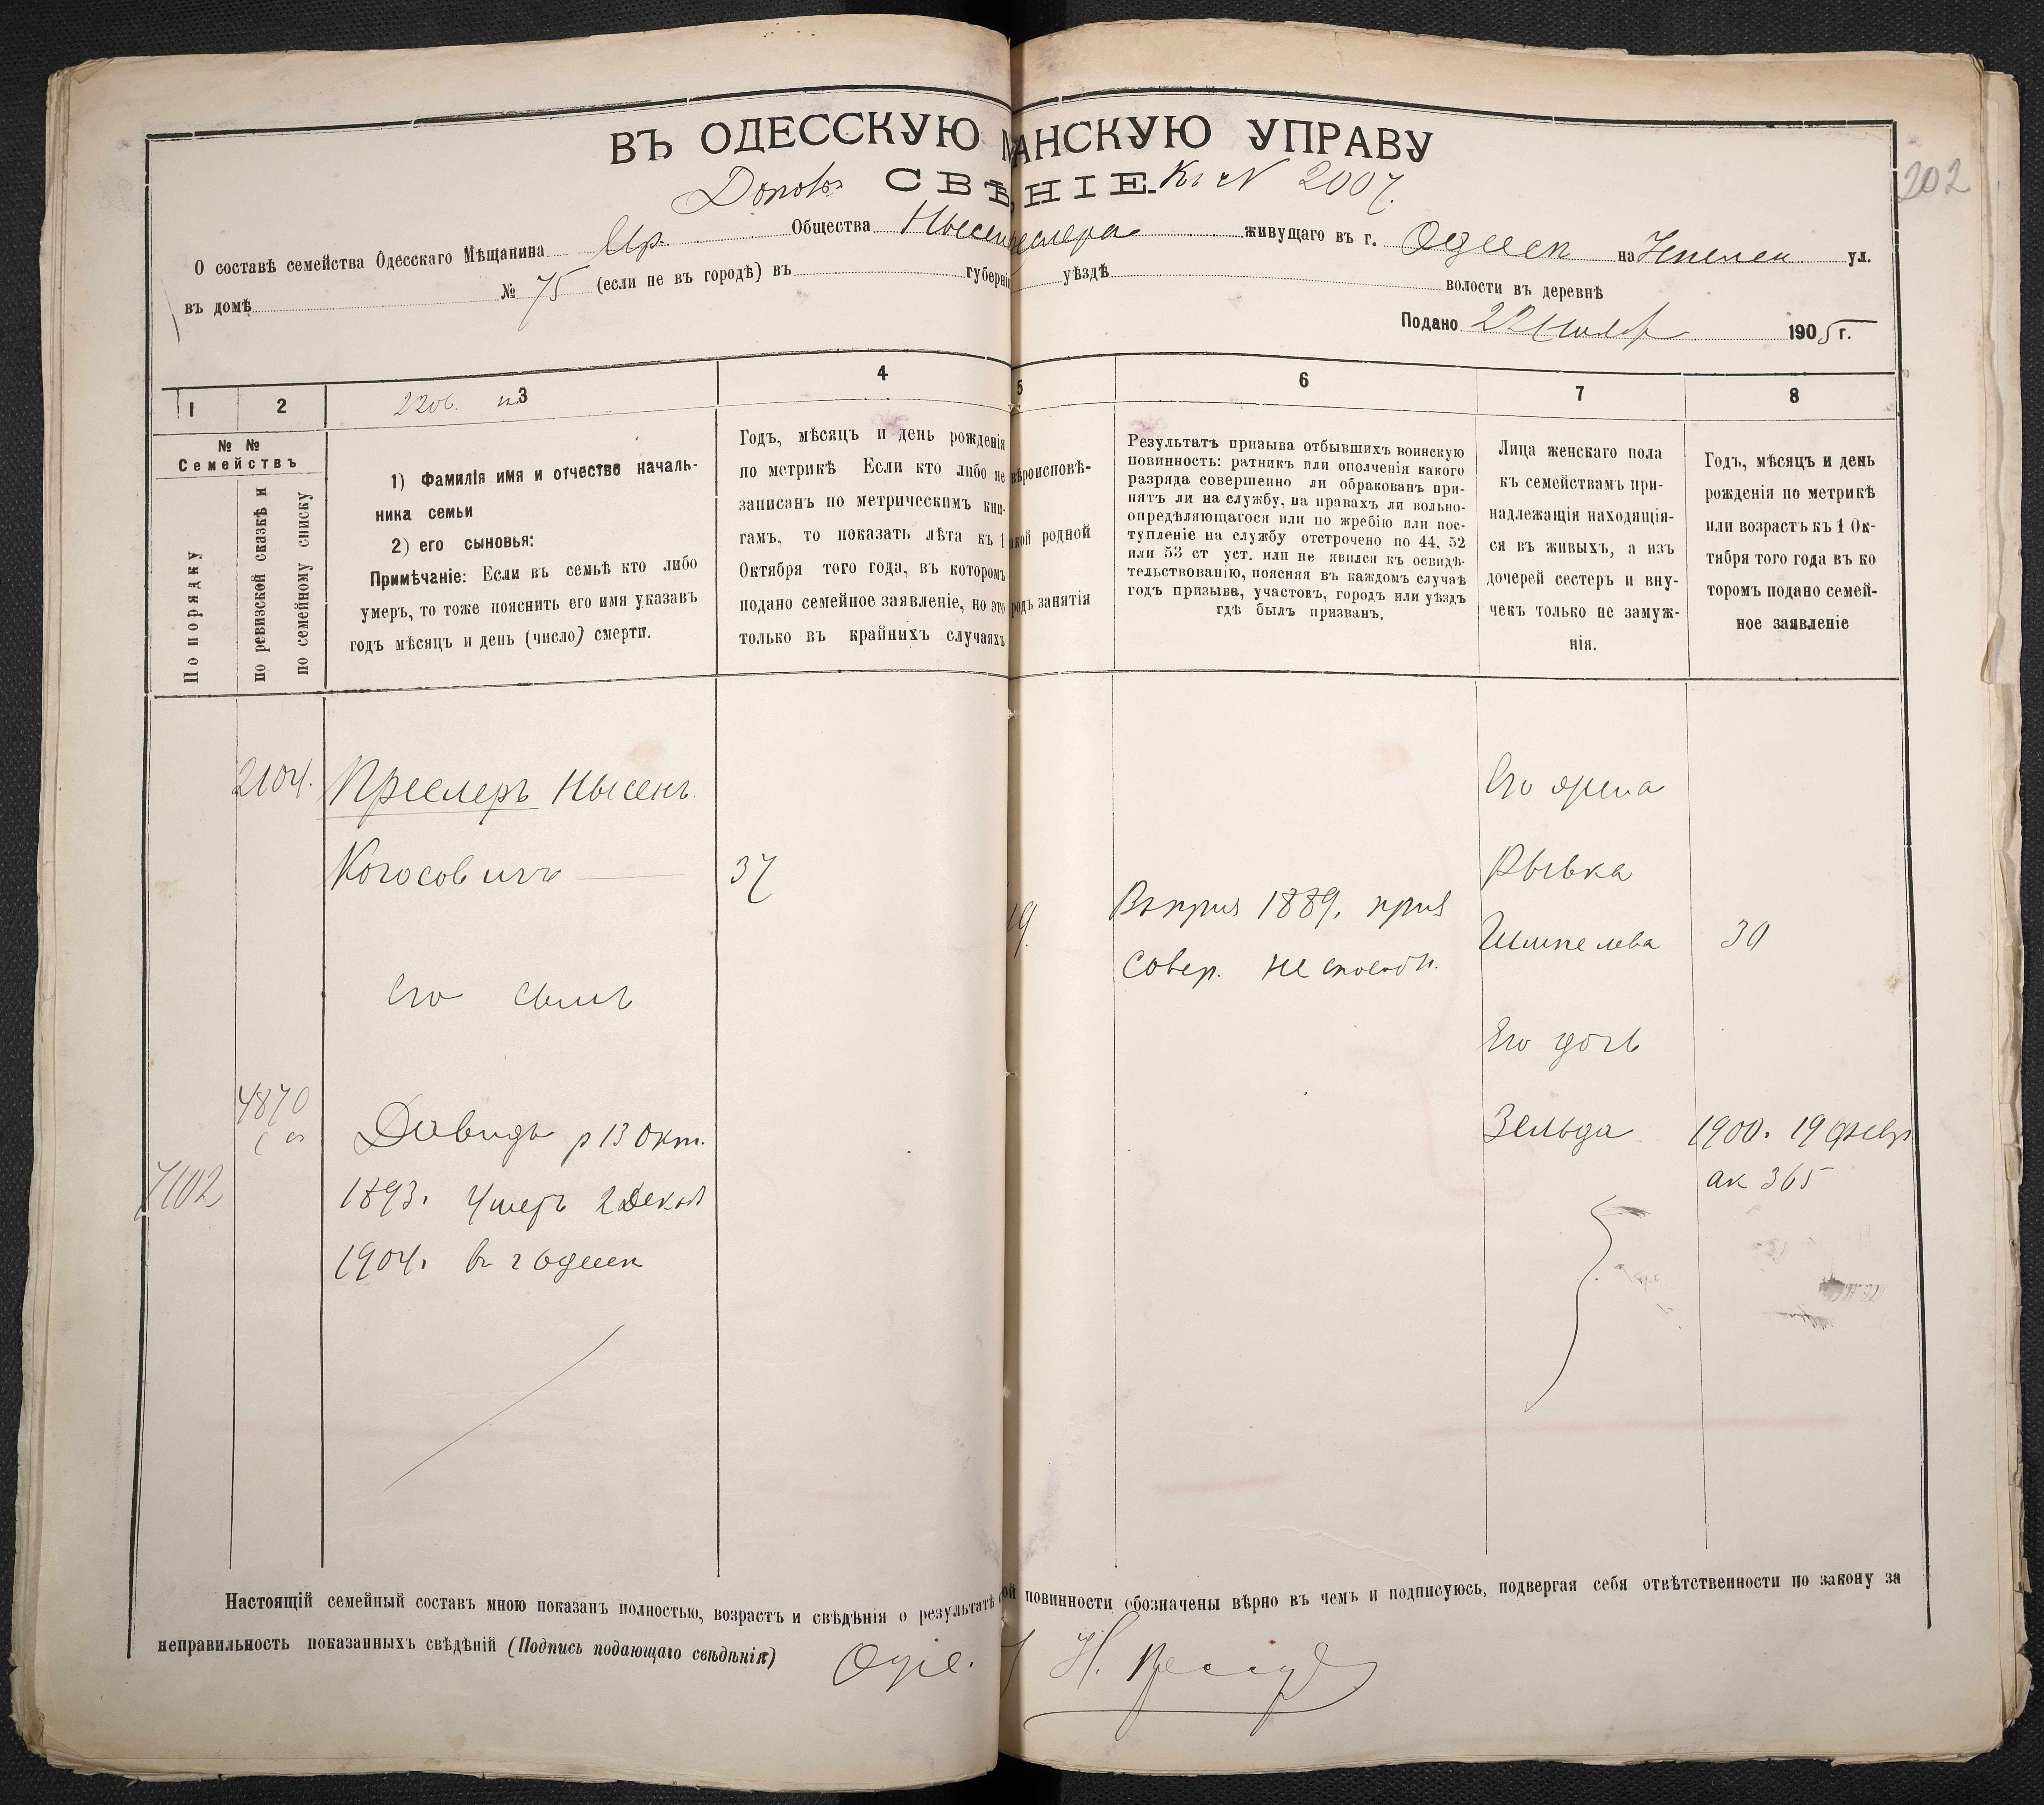 202
ВЪ ОДЕССКУЮ АНСКУЮ УПРАВУ
СВѢ НІЕ Къ N 2007.
О составѣ семейства Одесскаго Мѣщанина Общества живущаго въ г. Одессѣ на ул.
въ домѣ № 75 (если не въ городѣ) въ губерні уѣздѣ волости въ деревнѣ
Подано 22 1905 г.
1 2 3 4 5 6 7 8
№ №
Семействъ
По порядку
по ревизской сказкѣ и
по семейному списку
1) Фамилія имя и отчество началь-
ника семьи
2) его сыновья:
Примѣчаніе: Если въ семьѣ кто либо
умеръ, то тоже пояснить его имя указавъ
годъ мѣсяцъ и день (число) смерти.
Годъ, мѣсяцъ и день рожденія
по метрикѣ Если кто либо не
записанъ по метрическимъ кни-
гамъ, то показать лѣта къ 1
Октября того года, въ которомъ
подано семейное заявленіе, но это
только въ крайнихъ случаяхъ
вѣроисповѣ-
кой родной
родъ занятія
Результатъ призыва отбывшихъ воинскую
повинность: ратникъ или ополченія какого
разряда совершенно ли обракованъ при-
нятъ ли на службу, на правахъ ли вольно-
опредѣляющагося или по жребію или пос-
тупленіе на службу отстрочено по 44, 52
или 53 ст уст. или не явился къ освидѣ-
тельствованію, поясняя въ каждомъ случаѣ
годъ призыва, участокъ, городъ или уѣздъ
гдѣ былъ призванъ.
Лица женскаго пола
къ семействамъ при-
надлежащія находящія-
ся въ живыхъ, а изъ
дочерей сестеръ и вну-
чекъ только не замуж-
нія.
Годъ, мѣсяцъ и день
рожденія по метрикѣ
или возрастъ къ 1 Ок-
тября того года въ ко
торомъ подано семей-
ное заявленіе
2104. Преслеръ Нысенъ
Когосовичъ 37
его сынъ
4870
7102
Давидъ р 13 Окт.
1893. Умеръ 2 Декаб
1904. въ г Одессѣ
1889. приз
Совер. не способн.
Его жена
Рывка
30
Его дочь
Зельда 1900. 19 февр
ак 365
Настоящій семейный составъ мною показанъ полностью, возрастъ и свѣдѣнія о результатѣ ой повинности обозначены вѣрно въ чемъ и подписуюсь, подвергая себя отвѣтственности по закону за
неправильность показанныхъ свѣдѣній (Подпись подающаго свѣдѣнія)